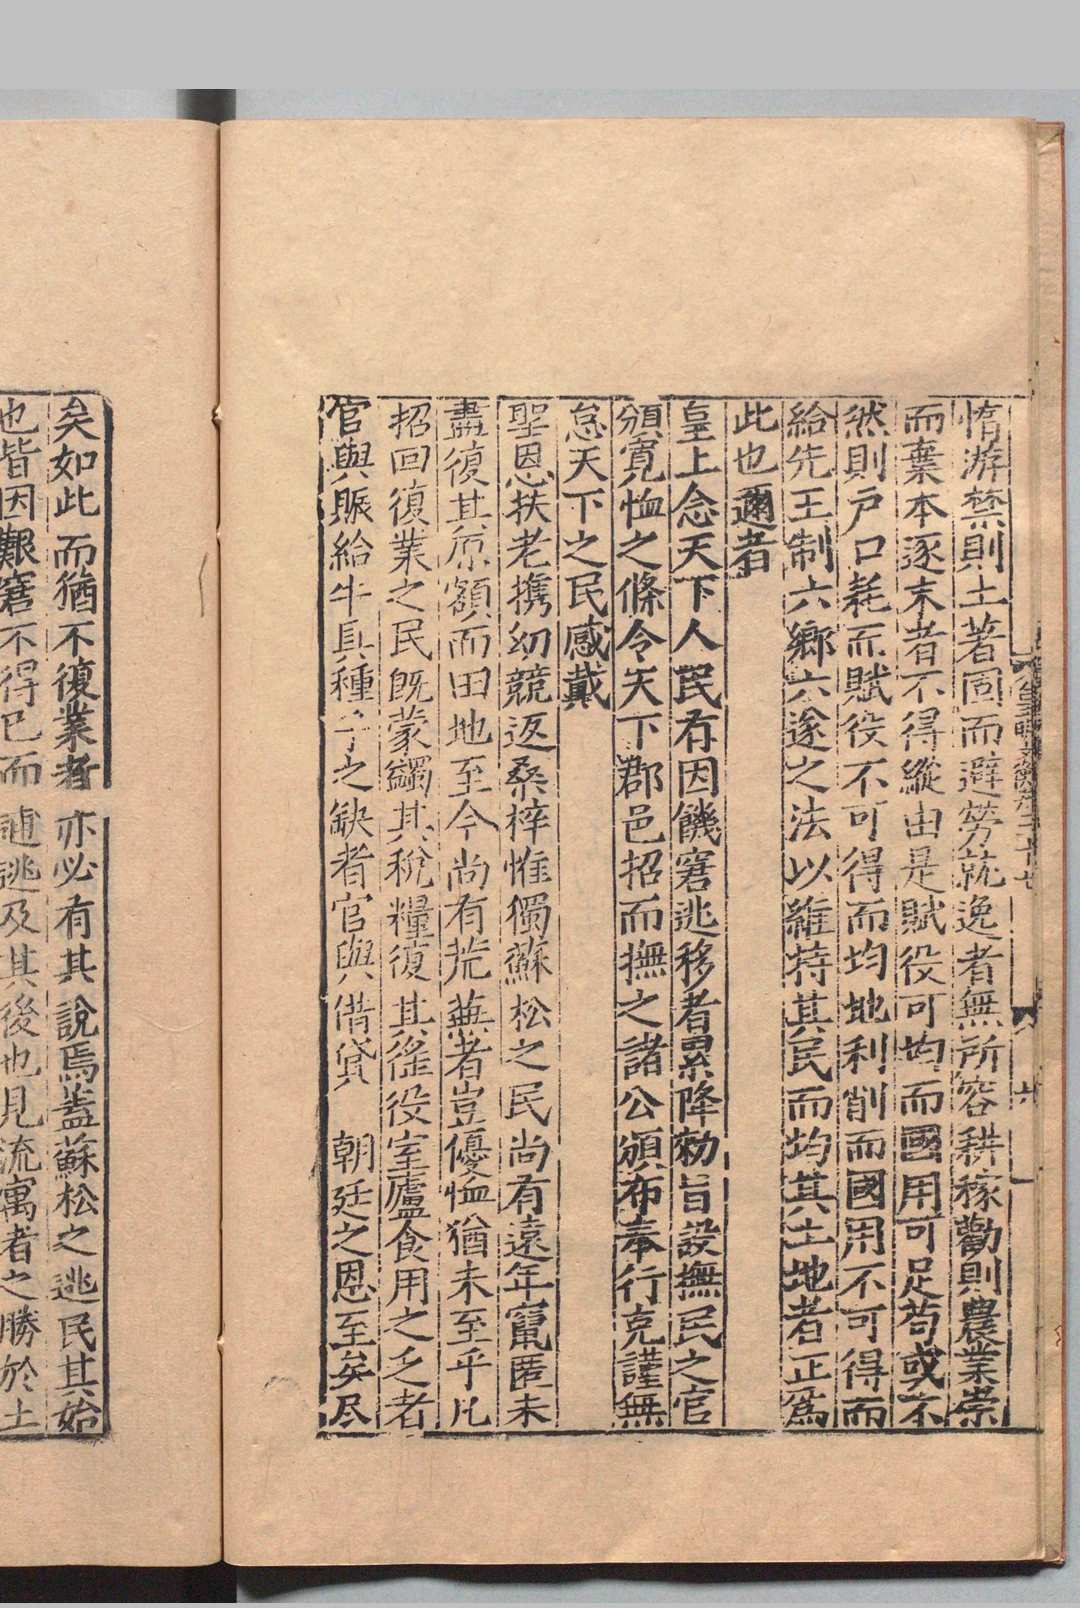 惰游禁則土著固而避勞就逸者無所容耕稼勸則農業崇
而棄本逐末者不得縱由是賦役可均而國用可足苟或不
然則戶口耗而賦役不可得而均地利削而國用不可得而
給先王制六鄉六遂之法以維持其民而均其土地者正為
此也邇者
皇上念天下人民有因饑窘逃移者累降勑旨設撫民之官
頒寬恤之條令天下郡邑招而撫之諸公頒布奉行克謹無
怠天下之民感戴
聖恩扶老携幼競返桑梓惟獨蘇松之民尚有遠年竄匿未
盡復其原額而田地至今尚有荒蕪者豈優恤猶未至乎凡
招回復業之民既蒙蠲其稅糧復其徭役室廬食用之乏者
官與賑給牛具種子之缺者官與借貸 朝廷之恩至矣尽
矣如此而猶不復業者亦必有其說焉盖蘇松之逃民其始
也皆因艱窘不得已而逋逃及其後也見流寓者之勝於土